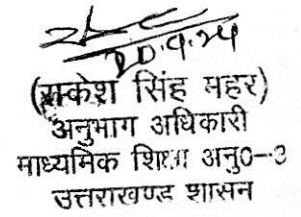 20.9.24
(राकेश सिंह महर)
अनुभाग अधिकारी
माध्यमिक शिक्षा अनु0-3
उत्तराखण्ड शासन